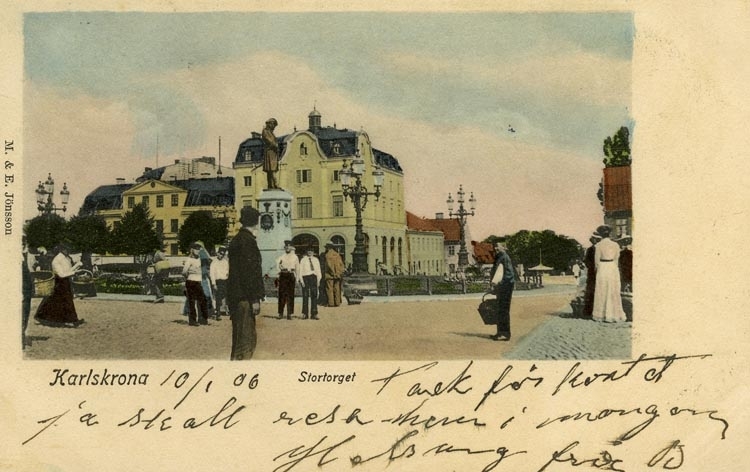 M. & E. Jönsson
Karlskrona 10/1 06 Stortorget Tack för kortet
ja skall resa hem i morgon
Helsning från